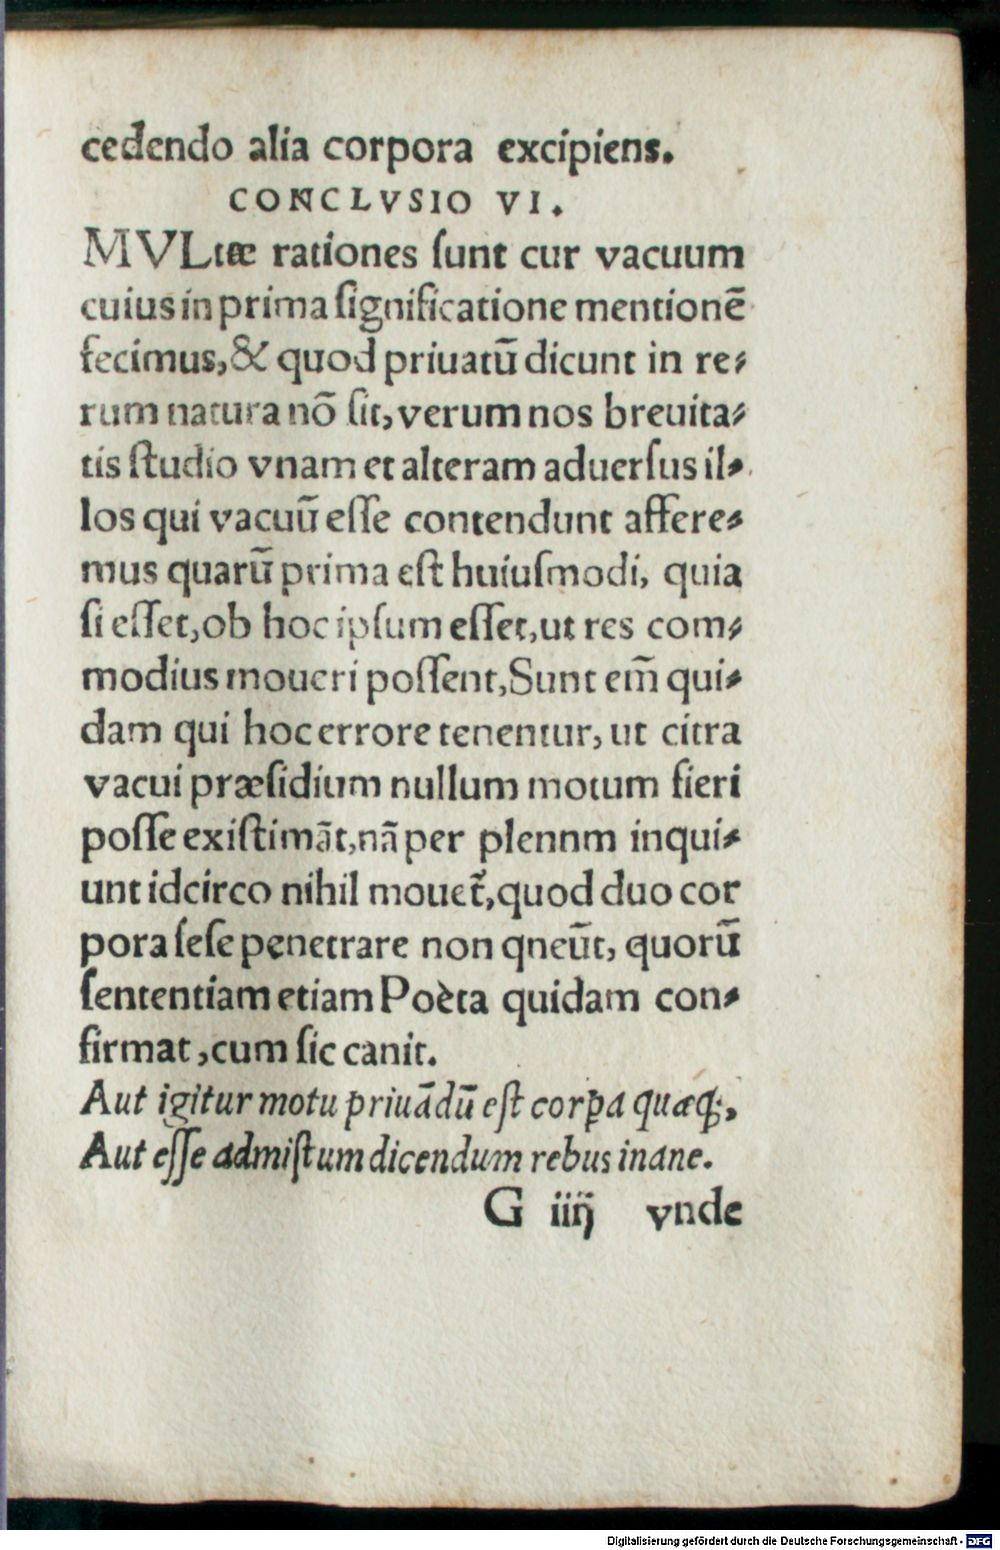 cedendo alia corpora excipiens.
CONCLVSIO VI.
MVLtæ rationes sunt cur vacuum
cuius in prima significatione mentionē
fecimus, & quod priuatū dicunt in re⸗
rum natura nō sit, verum nos breuita⸗
tis studio vnam et alteram aduersus il⸗
los qui vacuū esse contendunt affere⸗
mus quarū prima est huiusmodi, quia
si esset, ob hoc ipsum esset, ut res com⸗
modius moueri possent, Sunt em̄ qui⸗
dam qui hoc errore tenentur, ut citra
vacui præsidium nullum motum fieri
posse existimāt, nā per plennm inqui⸗
unt idcirco nihil mouet᷑, quod duo cor
pora sese penetrare non qneūt, quorū
sententiam etiam Poèta quidam con⸗
firmat, cum sic canit.
Aut igitur motu priuādū est corꝑa quæq̃;,
Aut esse admistum dicendum rebus inane.
G iiij vnde
Digitalisierung gefördert durch die Deutsche Forschungsgemeinschaft - DFG